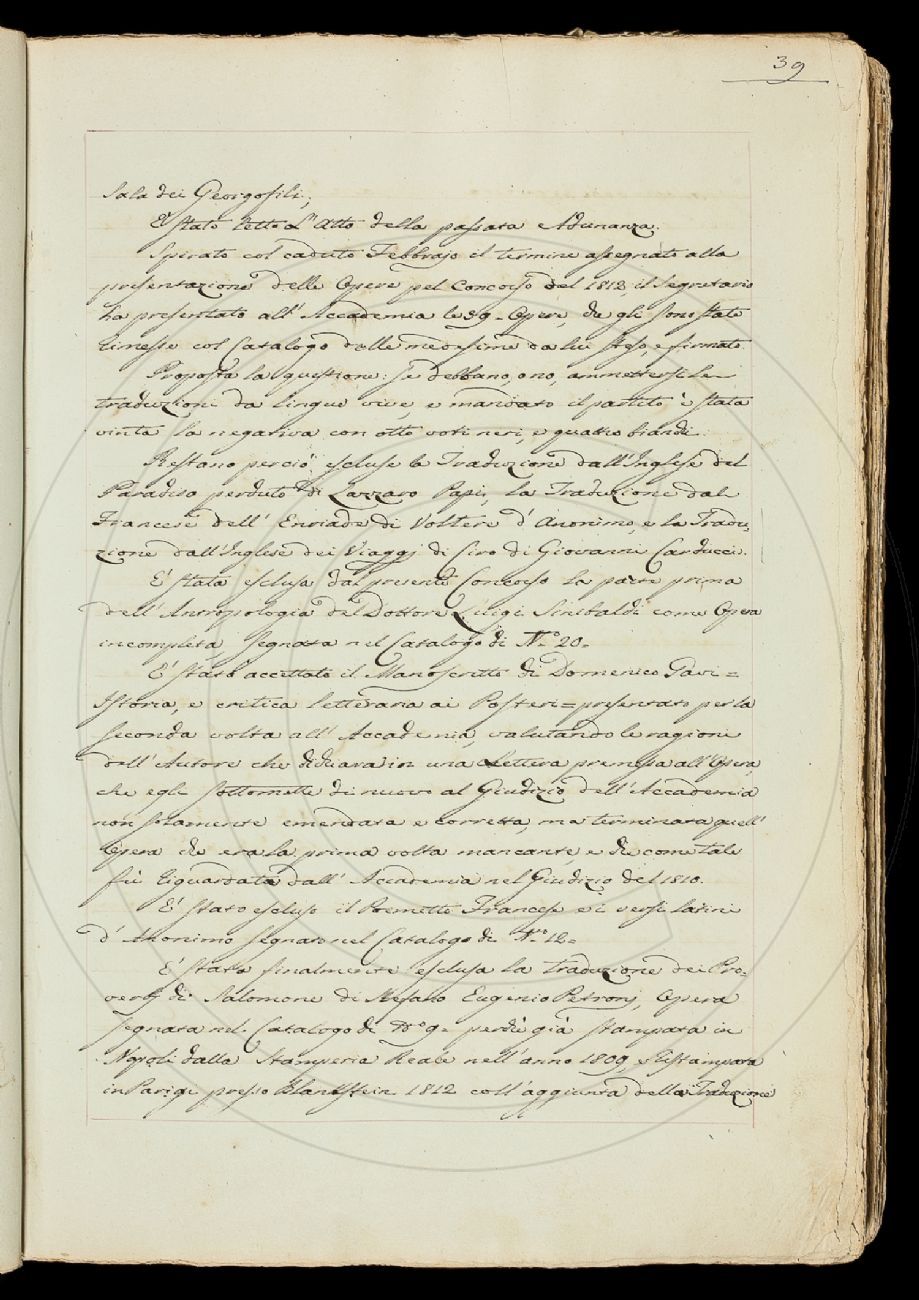 39
Sala dei Georgofili;
È stato letto l'Atto della passata Adunanza.
Spirato col caduto Febbrajo il termine assegnato alla
presentazione delle Opere pel Concorso del 1813, il Segretario
ha presentato all' Accademia le 39. Opere, che gli sono state
rimesse col Catalogo delle medesime da lui steso, e firmato.
Proposta la questione: se debbano, o no, ammettersi le
traduzioni da lingue vive, e mandato il partito è stata
vinta la negativa con otto voti neri, e quattro bianchi.
Restano perciò escluse la Traduzione dall'Inglese del
Paradiso perduto di Lazzaro Papi, la Traduzione dal
Francese dell' Enriade di Voltere d' Anonimo, e la Tradu,
zione dall'Inglese dei Viaggj di Ciro di Giovanni Carducci.
E' stata esclusa dal presente Concorso la parte prima
dell' Antropologia del Dottore Luigi Sinibaldi come Opera
incompleta, segnata nel Catalogo di N.° 20.
E' stato accettato il Manoscritto di Domenico Gavi =
Istoria, e critica letteraria ai Posteri = presentato per la
seconda volta all' Accademia, valutando le ragioni
dell' Autore che dichiara in una Lettera premessa all'Opera,
che egli sottomette di nuovo al Giudizio dell' Accademia
non solamente emendata e corretta, ma terminata quell'
Opera che era la prima volta mancante, e che come tale
fù riguardata dall' Accademia nel Giudizio del 1810.
E' stato escluso il Poemetto Francese e i versi latini
d' Anonimo segnato nel Catalogo di N.° 12.
E' stata finalmente esclusa la traduzione dei Pro-
verbj di Salomone di Stefano Eugenio Petronj, Opera
segnata nel Catalogo di N.° 9. perchè già stampata in
Napoli dalla Stamperia Reale nell' anno 1809, e ristampata
in Parigi presso Blankstein 1812 coll' aggiunta della Traduzione